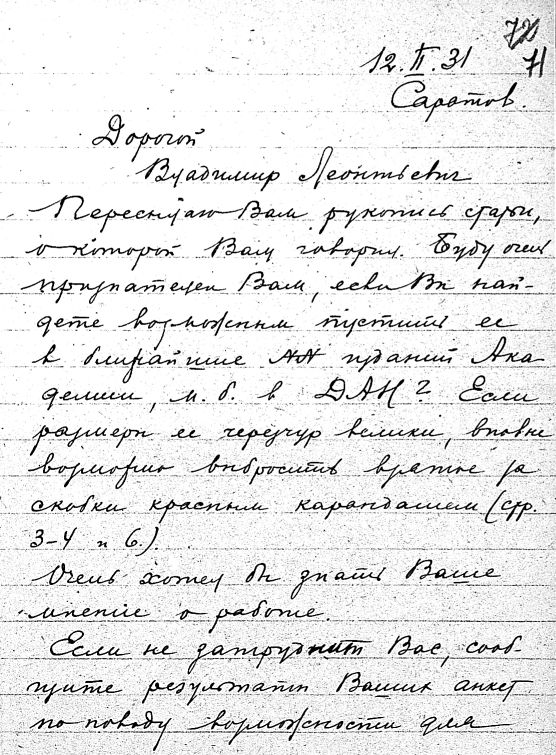 72
71
12.II.31
Саратов.
Дорогой
Владимир Леонтьевич
Пересылаю Вам рукопись статьи,
о которой Вам говорил. Буду очень
признателен Вам, если Вы най-
дете возможным пустить ее
в ближайшие NN изданий Ака-
демии, м.б. в ДАН? Если
размеры ее чересчур велики, вполне
возможно выбросить взятое за
скобки красным карандашем (стр.
3-4 и 6.).
Очень хотел бы знать Ваше
мнение о работе.
Если не затруднит Вас, сооб-
щите результаты Ваших анкет
по поводу возможности для